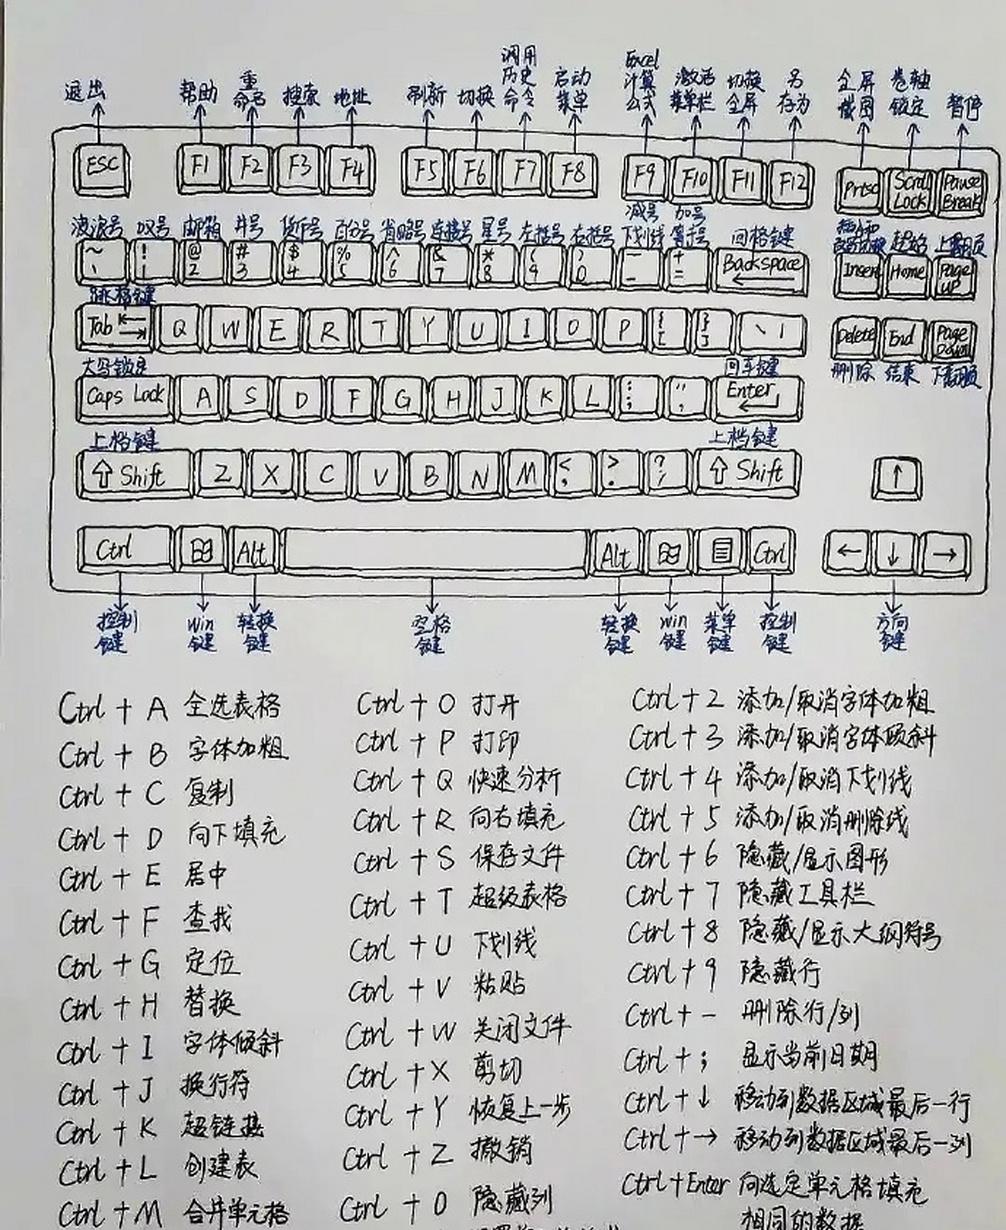 退出 帮助 重命名 搜索 地址 刷新 切换 调用历史命令 启动菜单 Excel计算公式 激活菜单栏 切换全屏 另存为 全屏截图 卷轴锁定 暂停
ESC F1 F2 F3 F4 F5 F6 F7 F8 F9 F10 F11 F12 Prtsc Scroll Lock Pause Break
波浪号 叹号 邮箱 井号 货币号 百分号 省略号 连接号 星号 左括号 右括号 减号下划线 加号等号 回格键 起始 上翻页
~ ! @ # $ % ^ & * ( ) — +
、 1 2 3 4 5 6 7 8 9 0 - = Backspace Insert Home Page UP
跳格键
Tab Q W E R T Y U I O P { [ } ] \ | Delete End Page Down
删除 结束 下翻页
大写锁定 回车键
Caps Lock A S D F G H J K L : ; " , Enter
上档键 上档键
Shift Z X C V B N M < , > . ? / Shift ↑
Ctrl Alt Alt Ctrl ← ↓ →
控制键 Win键 转换键 空格键 转换键 Win键 菜单键 控制键 方向键
Ctrl + A 全选表格
Ctrl + B 字体加粗
Ctrl + C 复制
Ctrl + D 向下填充
Ctrl + E 居中
Ctrl + F 查找
Ctrl + G 定位
Ctrl + H 替换
Ctrl + I 字体倾斜
Ctrl + J 换行符
Ctrl + K 超链接
Ctrl + L 创建表
Ctrl + M 合并单元格
Ctrl + O 打开
Ctrl + P 打印
Ctrl + Q 快速分析
Ctrl + R 向右填充
Ctrl + S 保存文件
Ctrl + T 超级表格
Ctrl + U 下划线
Ctrl + V 粘贴
Ctrl + W 关闭文件
Ctrl + X 剪切
Ctrl + Y 恢复上一步
Ctrl + Z 撤销
Ctrl + 0 隐藏列
Ctrl + 2 添加/取消字体加粗
Ctrl + 3 添加/取消字体倾斜
Ctrl + 4 添加/取消下划线
Ctrl + 5 添加/取消删除线
Ctrl + 6 隐藏/显示图形
Ctrl + 7 隐藏工具栏
Ctrl + 8 隐藏/显示大纲符号
Ctrl + 9 隐藏行
Ctrl + - 删除行/列
Ctrl + ; 显示当前日期
Ctrl + ↓ 移动到数据区域最后一行
Ctrl + → 移动到数据区域最后一列
Ctrl + Enter 向选定单元格填充
相同的数据